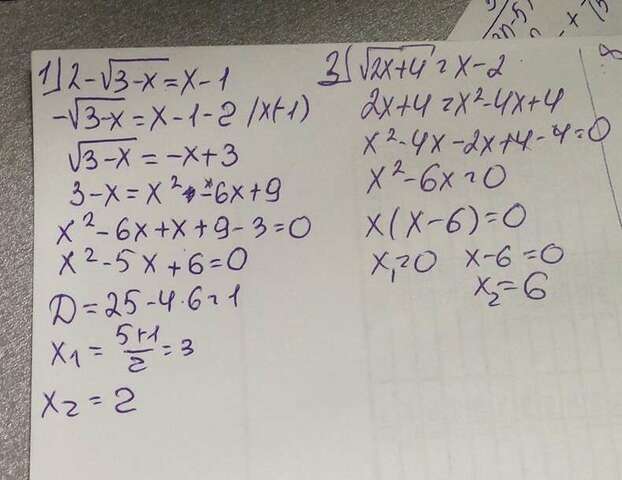 1) 2-√(3-x)=x-1
-√(3-x)=x-1-2 /x(-1)
√(3-x)=-x+3
3-x=x²-6x+9
x²-6x+x+9-3=0
x²-5x+6=0
D=25-4·6=1
x₁=(5+1)/2=3
x₂=2
3) √(2x+4)=x-2
2x+4=x²-4x+4
x²-4x-2x+4-4=0
x²-6x=0
x(x-6)=0
x₁=0 x-6=0
x₂=6